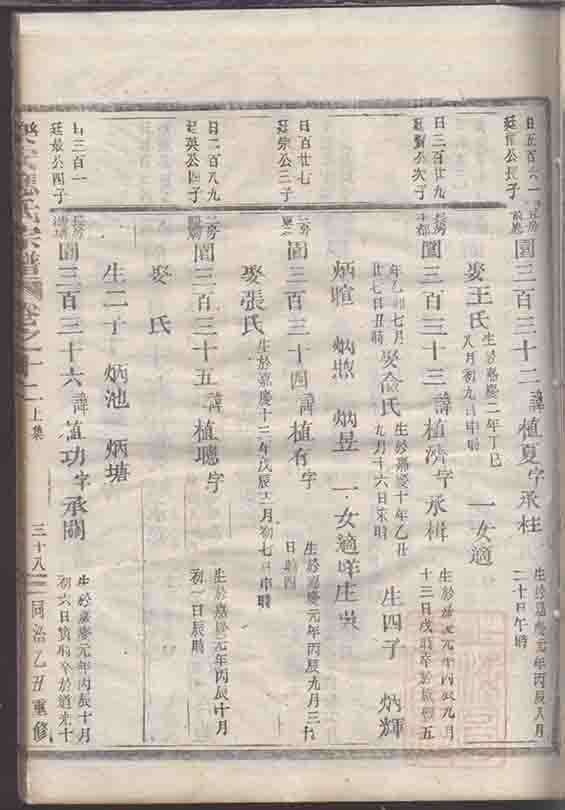 日五百六一
廷 公長子
長房
圖三百三十二諱植夏字承桂
生於嘉慶元年丙辰八月
二十日午時
娶王氏
生於嘉慶二年丁巳
八月初九日申時
一女適
日三百廿九
廷 公次子
長房
圖三百三十三諱植濟字承楫
生於嘉慶元年丙辰九月
十三日戌時卒於 五
年乙卯七月
廿七日丑時
娶俞氏
生於嘉慶十年乙丑
九月十六日未時
生四子 炳輝
炳暄 炳煦 炳昱 一女適 庄吳
日百廿七
廷宗公三子
二房
圖三百三十四諱植有字
生於嘉慶元年丙辰九月三十
日時
娶張氏
生於嘉慶十三年戊辰 月初七日申時
日二百八九
廷英公四子
二房
圖三百三十五諱植聰字
生於嘉慶元年丙辰十月
初一日辰時
娶 氏
生二子 炳池 炳塘
日三百一
廷最公四子
長房
圖三百三十六諱植功字承關
生於嘉慶元年丙辰十月
初六日寅時卒於道光十
應氏宗譜 卷之十二 上集 三十八 同治乙丑重修